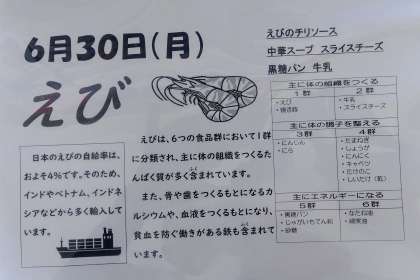 6月30日(月)
えび
えびのチリソース
中華スープ スライスチーズ
黒糖パン 牛乳
日本のえびの自給率は、
およそ4%です。そのため、
インドやベトナム、インドネ
シアなどから多く輸入して
います。
えびは、6つの食品群において1群
に分類され、主に体の組織をつくるた
んぱく質が多く含まれています。
また、骨や歯をつくるもとになるカ
ルシウムや、血液をつくるもとになり、
貧血を防ぐ働きがある鉄も含まれて
います。
主に体の組織をつくる
1群 2群
・えび
・牛乳
・スライスチーズ
主に体の調子を整える
3群 4群
・にんじん
・にら
・たまねぎ
・しょうが
・にんにく
・キャベツ
・たけのこ
・しいたけ(乾)
主にエネルギーになる
5群 6群
・黒糖パン
・じゃがいもでん粉
・砂糖
・なたね油